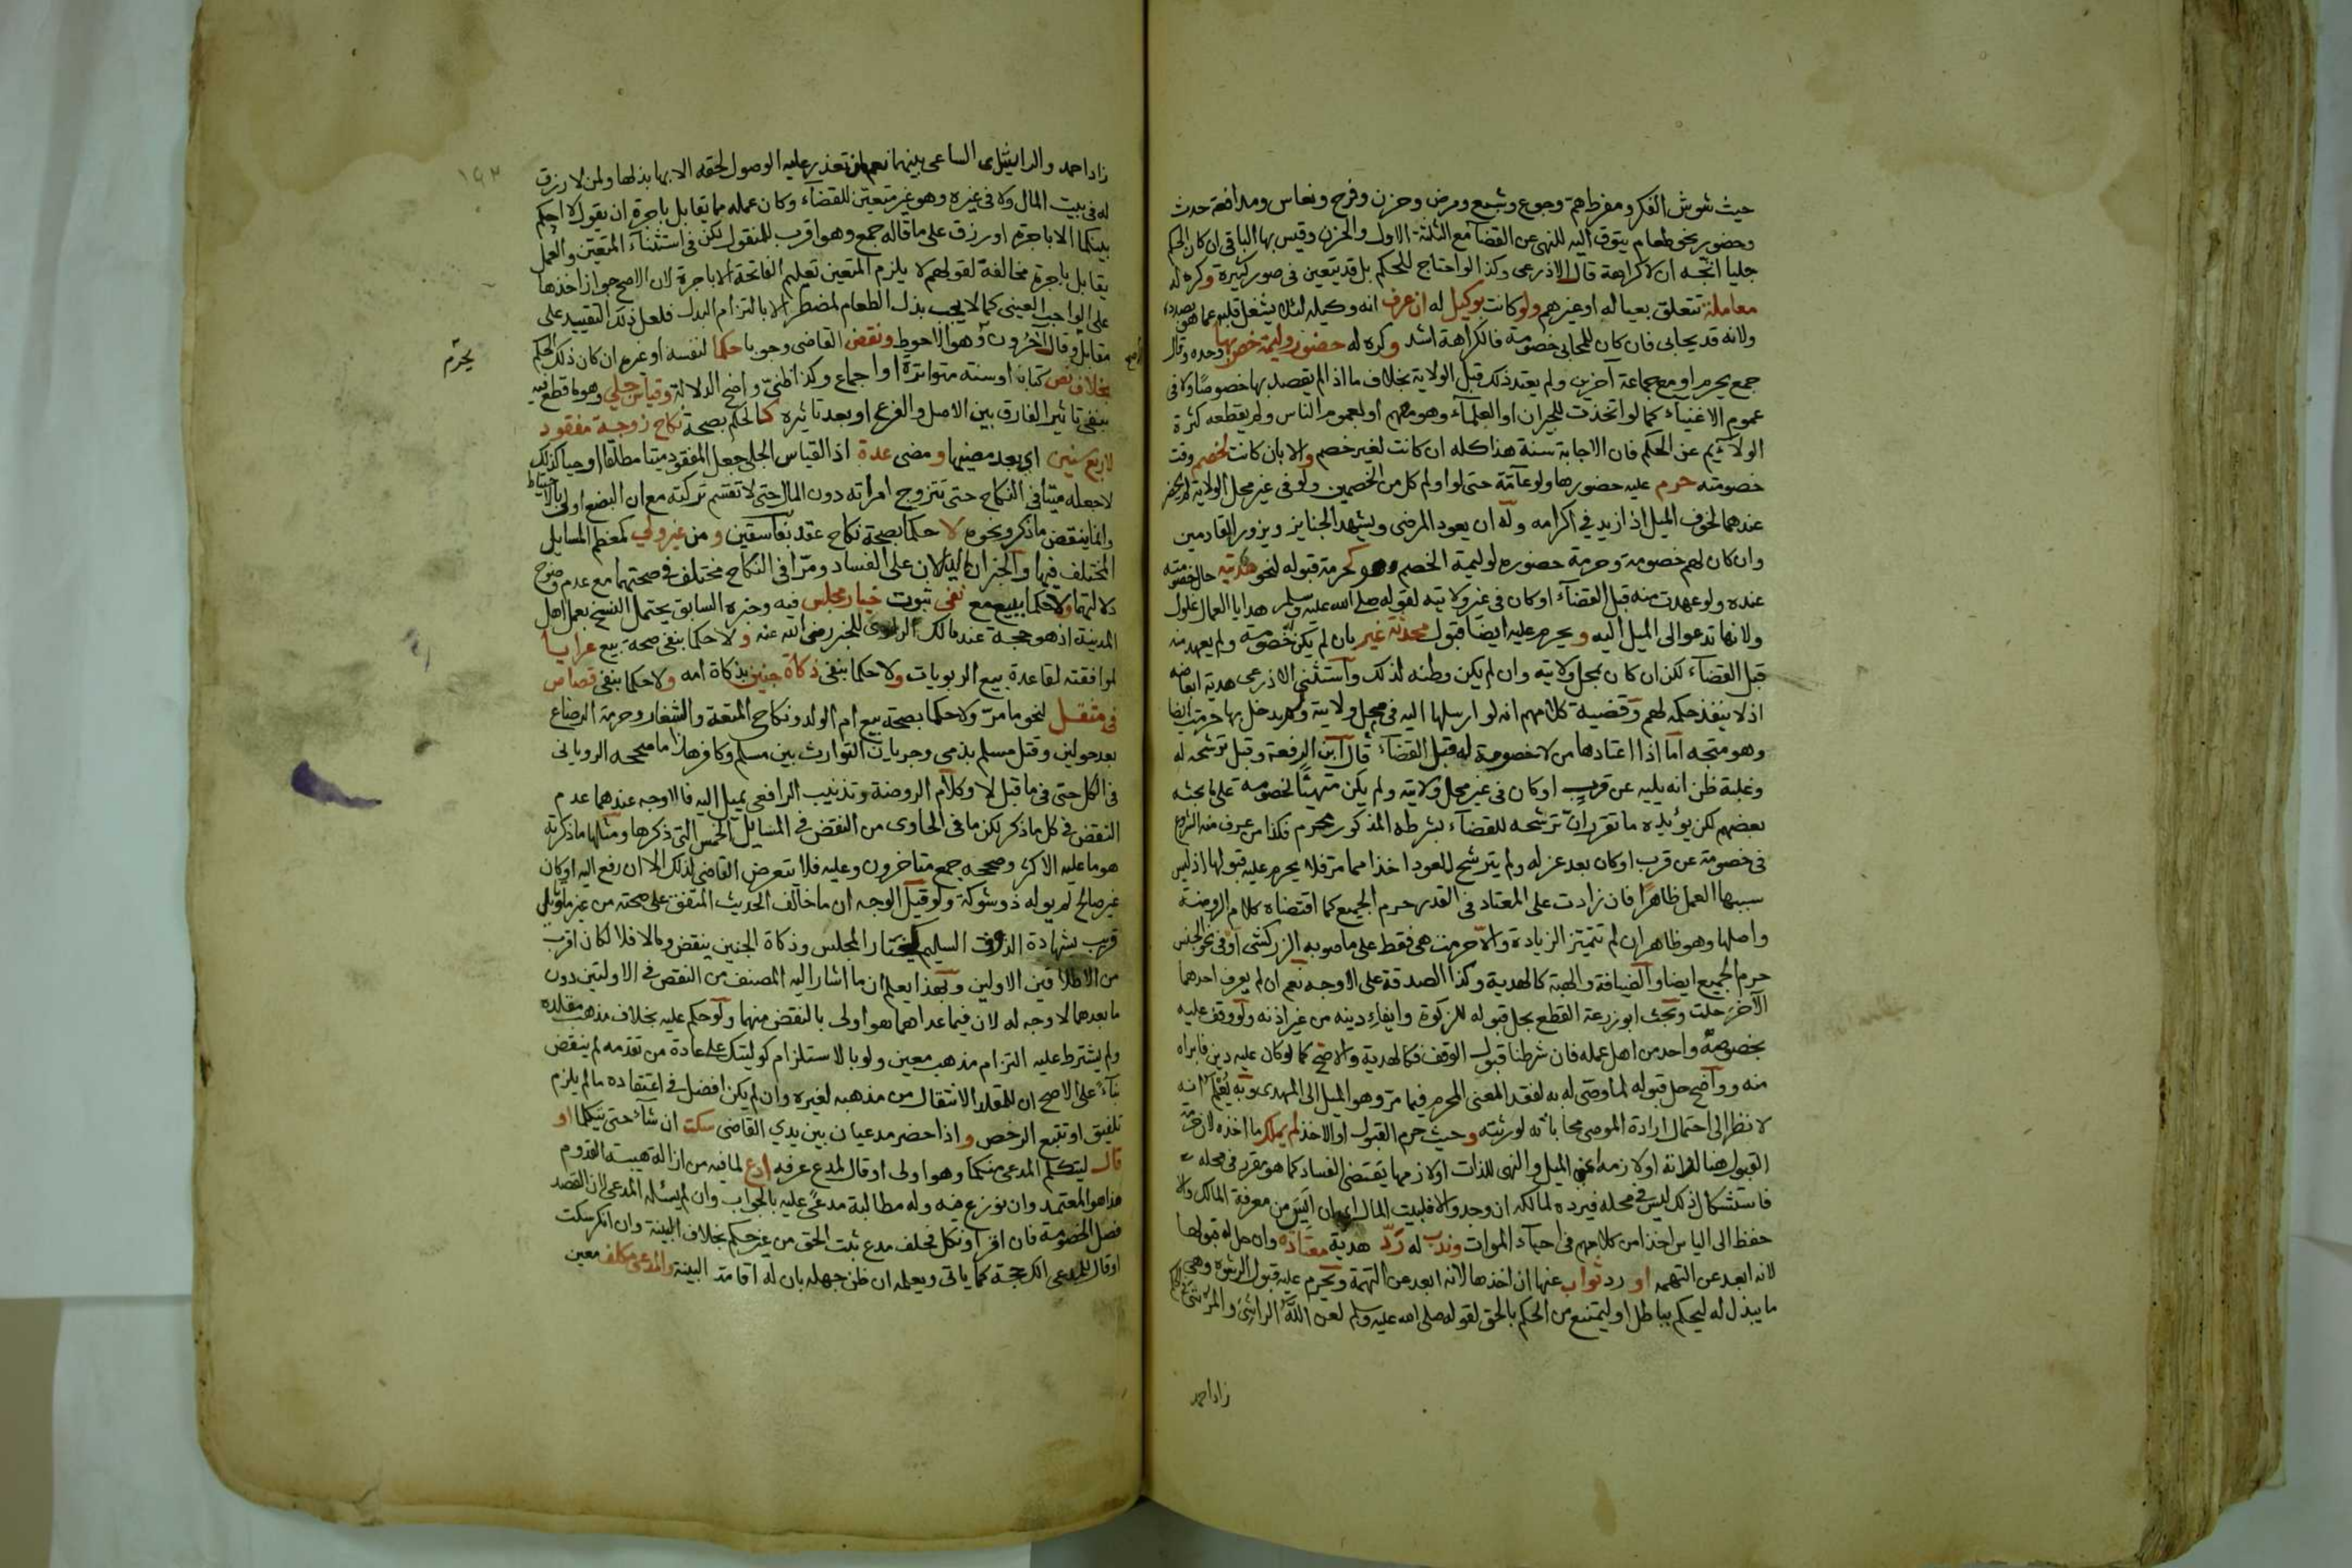 حيث شوش الفكر ومفرط هم وجوع وشبع ومرض وحزن وفرح ونعاس ومدافعة حدث
وحضور نحو طعام يتوق اليه للنهى عن القضآ مع الثلثة الاول والحزن وقيس بها الباقى ان كان الحكم
جليا اتجه ان لا كراهة قال الاذرعى وكذا لو احتاج للحكم بل قد يتعين فى صور كثيرة وكره له
معاملة تتعلق بعياله او غيرهم ولو كانت بوكيل له ان عرف انه وكيله لئلا يشغل قلبه عما هو بصدده
ولانه قد يحابى فان كان للمحابى خصومة فالكراهة اشد وكره له حضور وليمة خص بها وحده وقال
جمع يحرم او مع جماعة آخرين ولم يعتد ذلك قبل الولاية بخلاف ما اذا لم يقصد بها خصوصا ولا فى
عموم الاغنيآء كما لو اتخذت للجيران او العلمآء وهو منهم او لعموم الناس ولم يقطعه كثرة
الولآئم عن الحكم فان الاجابة سنة هذا كله ان كانت لغير خصم والا بان كانت لخصم وقت
خصومته حرم عليه حضورها ولو عآمة حتى لو اولم كل من الخصمين ولو فى غير محل الولاية لم يحضر
عندهما لخوف الميل اذا زيد في اكرامه وله ان يعود المرضى ويشهد الجنايز ويزور القادمين
وان كان لهم خصومة وحرمة حضوره لوليمة الخصم وهو كحرمة قبوله لنحو هديته حال خصومته
عنده ولو عهدت منه قبل القضآء او كان فى غير ولايته لقوله صلى الله عليه وسلم هدايا العمال غلول
ولانها تدعو الى الميل اليه ويحرم عليه ايضا قبول محدثة غير بان لم يكن له خصومة ولم يعهد منه
قبل القضآء لكن ان كان بمحل ولايته وان لم يكن وطنه لذلك واستثنى الاذرعى هدية ابعاضه
اذ لا ينفذ حكمه لهم وقضية كلامهم انه لو ارسلها اليه فى محل ولايته ولم يدخل بها حرمت ايضا
وهو متجه اما اذا اعتادها من لا خصومة له قبل القضآء قال ابن الرفعة وقبل ترشحه له
وغلبة ظن انه يليه عن قريب او كان فى غير محل ولايته ولم يكن متهيئا لخصومة على ما بحثه
بعضهم لكن يؤيده ما تقرر ان ترشحه للقضآء بشرطه المذكور محرم فكذا من عرف منه الشروع
فى خصومة عن قرب او كان بعد عزله ولم يترشح للعود اخذا مما مر فلا يحرم عليه قبولها اذ ليس
سببها العمل ظاهرا فان زادت على المعتاد فى القدر حرم الجميع كما اقتضاه كلام الروضة
واصلها وهو ظاهر ان لم تتميز الزيادة والا حرمت هى فقط على ما صوبه الزركشى او فى نحو الجنس
حرم الجميع ايضا والضيافة والهبة كالهدية وكذا الصدقة على الاوجه نعم ان لم يعرف احدهما
الآخر حلت وبحث ابو زرعة القطع بحل قبوله للزكوة وايفاء دينه من غير اذنه ولو وقف عليه
بخصوصه واحد من اهل عمله فان شرطنا قبول الوقف فكالهدية والا صح كما لو كان عليه دين فابراه
منه وواضح حل قبوله لما وصى له به لفقد المعنى المحرم فيما مر وهو الميل الى المهدى وبه يُعلم انه
لا نظر الى احتمال ارادة الموصى محاباته لورثته وحيث حرم القبول او الاخذ لم يملك ما اخذه لان حرمة
القبول هنا لذاته او لازمه اعنى الميل والنهى للذات او لازمها يقتضى الفساد كما هو مقرر فى محله
فاستشكال ذلك ليس فى محله فيرده لمالكه ان وجد والا فلبيت المال اى ان ايس من معرفة المالك والا
حفظ الى الياس اخذا من كلامهم فى احيآء الموات وندب له رد هدية معتادة وان حل له قبولها
لانه ابعد عن التهمه او رد ثواب عنها ان اخذها لانه ابعد عن التهمة ويحرم عليه قبول الرشوة وهى
ما يبذل له ليحكم بباطل او ليمتنع من الحكم بالحق لقوله صلى الله عليه وسلم لعن اللهُ الراشى والمرتشى فى الحكم
زاد احمد
١٩٣
زاد احمد والرايش اى الساعى بينهما نعم ان تعذر عليه الوصول لحقه الا بها بذلها ولمن لا رزق
له فى بيت المال ولا فى غيره وهو غير متعين للقضآء وكان عمله مما يقابل باجرة ان يقول لا احكم
بينكما الا باجرة او رزق على ما قاله جمع وهو اقرب للمنقول لكن فى استثنآء المتعين والعمل
يقابل باجرة مخالفة لقولهم لا يلزم المتعين تعليم الفاتحة الا باجرة لان الاصح جواز اخذها
على الواجب العينى كما لا يجب بذل الطعام لمضطر الا بالتزام البدل فلعل ذلك التقييد على
مقابل وقال آخرون وهو الاحوط ونقض القاضى وجوبا حكما لنفسه او غيره ان كان ذلك الحكم
الاصح
يحرم
بخلاف نص كتاب او سنة متواترة او اجماع وكذا ظنى واضح الدلالة وقياس جلى وهو ما قطع فيه
بنفى تاثير الفارق بين الاصل والفرع او بعد تاثيره كالحكم بصحة نكاح زوجة مفقود
لاربع سنين اى بعد مضيها ومضى عدة اذ القياس الجلى جعل المفقود ميتا مطلقا او حيا كذلك
لا جعله ميتا فى النكاح حتى تتزوج امراته دون المال حتى لا تقسم تركته مع ان البضع اولى بالاحتياط
وانما ينقض ما ذكر ونحوه لا حكما بصحة نكاح عقد بفاسقين ومن غير ولى كمعظم المسايل
المختلف فيها والخبران الدالان على الفساد ومرا فى النكاح مختلف فى صحتهما مع عدم وضوح
دلالتهما ولا حكما ببيع مع نفى ثبوت خيار مجلس فيه وخبره السابق يحتمل النسخ بعمل اهل
المدينة اذ هو حجة عند مالك الراوى للخبر رضى الله عنه ولا حكما بنفى صحة بيع عرايا
لموافقته لقاعدة بيع الربويات ولا حكما بنفى ذكاة جنين بذكاة امه ولا حكما بنفى قصاص
فى مثقل لنحو ما مر ولا حكما بصحة بيع ام الولد ونكاح المتعة والشغار وحرمة الرضاع
بعد حولين وقتل مسلم بذمى وجريان التوارث بين مسلم وكافر هذا ما صححه الرويانى
فى الكل حتى فى ما قبل لا وكلام الروضة وتذنيب الرافعى يميل اليه فالاوجه عندهما عدم
النقض فى كل ما ذكر لكن ما فى الحاوى من النقض فى المسايل الخمس التى ذكرها ومثلها ما ذكرته
هو ما عليه الاكثر وصححه جمع متاخرون وعليه فلا يتعرض القاضى لذلك الا ان رفع اليه او كان
غير صالح لم يوله ذو شوكة ولو قيل الوجه ان ما خالف الحديث المتفق على صحته من غير تاويل
قريب بشهادة الذوق السليم كخيار المجلس وذكاة الجنين ينقض وما لا فلا لكان اقرب
من الاطلاقين الاولين وبهذا يعلم ان ما اشار اليه المصنف من النقض فى الاولتين دون
ما بعدهما لا وجه له لان فيما عداهما هو اولى بالنقض منهما ولو حكم عليه بخلاف مذهب مقلده
ولم يشترط عليه التزام مذهب معين ولو بالاستلزام كوليتك على عادة من تقدمه لم ينقض
بنآءً على الاصح ان للمقلد الانتقال من مذهبه لغيره وان لم يكن افضل فى اعتقاده ما لم يلزم
تلفيق او تتبع الرخص واذا حضر مدعيان بين يدي القاضى سكت ان شآء حتى يتكلما او
قال ليتكلم المدعى منكما وهو اولى او قال لمدع عرفه ادع لما فيه من ازالة هيبة القدوم
هذا هو المعتمد وان نوزع فيه وله مطالبة مدعىً عليه بالجواب وان لم يسئله المدعى لان القصد
فصل الخصومة فان اقر او نكل فحلف مدع ثبت الحق من غير حكم بخلاف البينة وان انكر سكت
او قال للمدعى الك حجة كما ياتى ويعلمه ان ظن جهله بان له اقامة البينة والمدعى مكلف معين